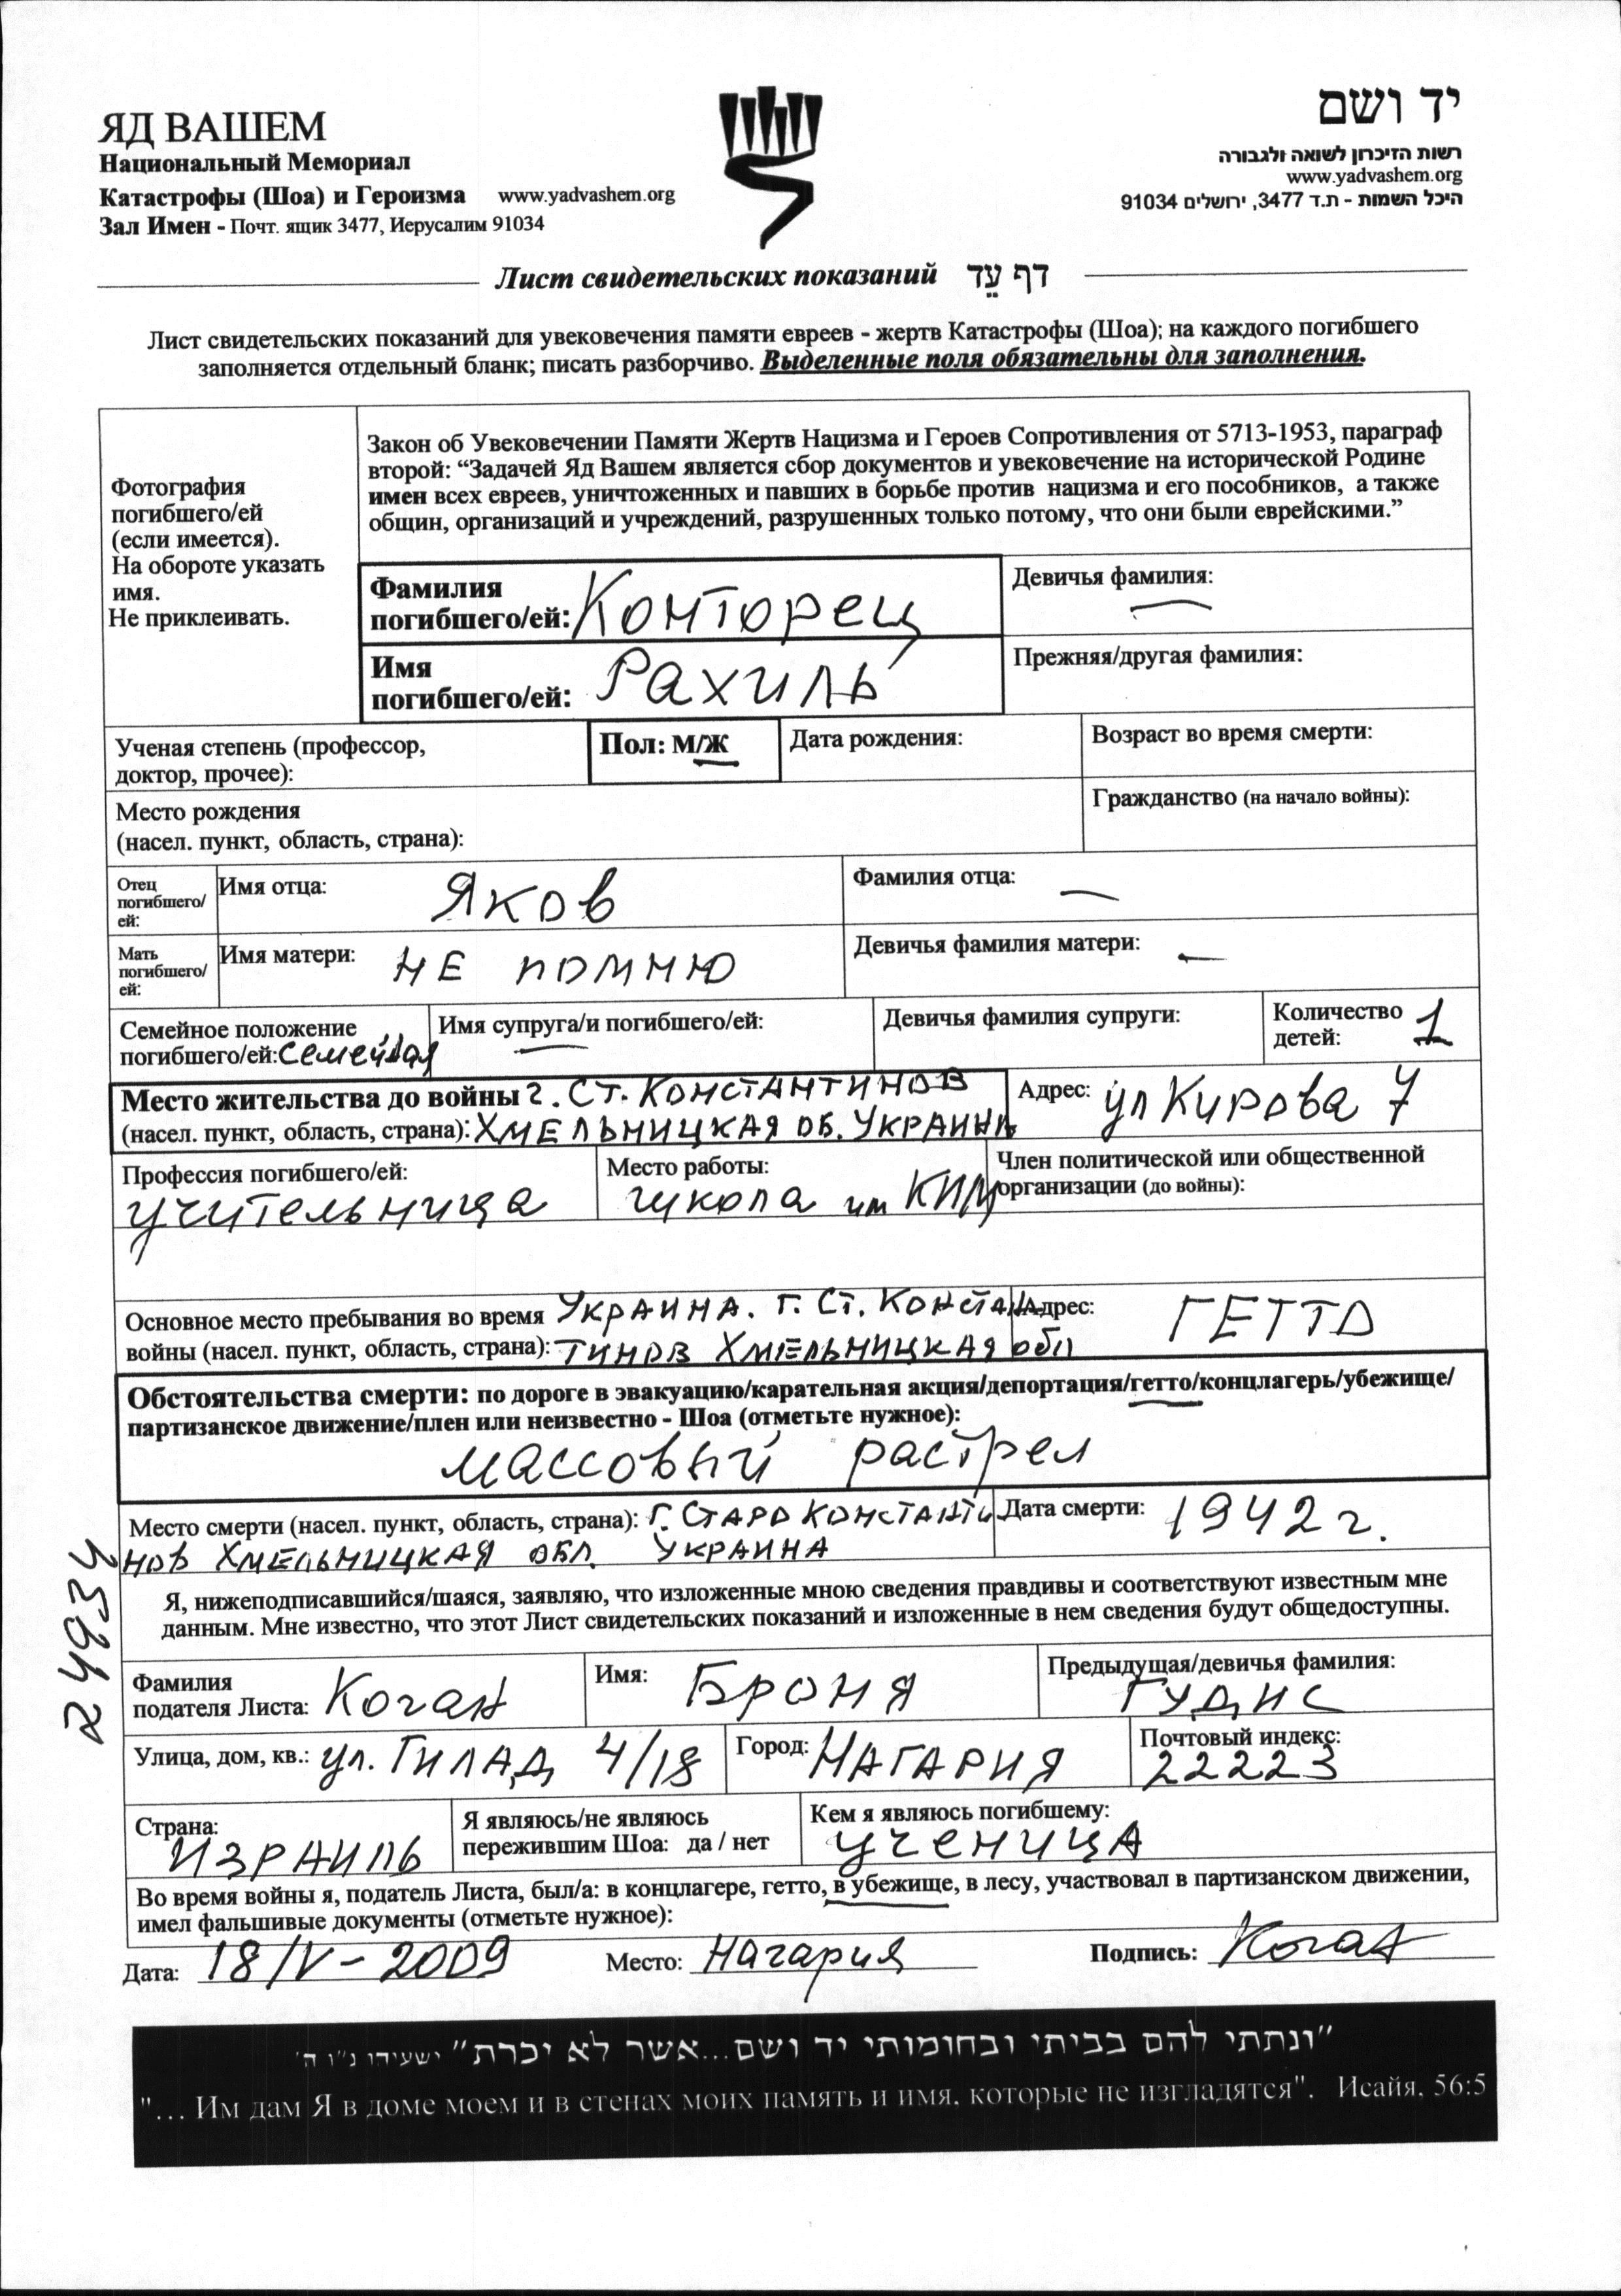 ЯД ВАШЕМ
Национальный Мемориал
Катастрофы (Шоа) и Героизма www.yadvashem.org
Зал Имен - Почт. ящик 3477, Иерусалим 91034
יד ושם
רשות הזיכרון לשואה ולגבורה
www.yadvashem.org
היכל השמות - ת.ד 3477, ירושלים 91034
Лист свидетельских показаний דף עֵד
Лист свидетельских показаний для увековечения памяти евреев - жертв Катастрофы (Шоа); на каждого погибшего
заполняется отдельный бланк; писать разборчиво. Выделенные поля обязательны для заполнения.
Фотография
погибшего/ей
(если имеется).
На обороте указать
имя.
Не приклеивать.
Закон об Увековечении Памяти Жертв Нацизма и Героев Сопротивления от 5713-1953, параграф
второй: “Задачей Яд Вашем является сбор документов и увековечение на исторической Родине
имен всех евреев, уничтоженных и павших в борьбе против нацизма и его пособников, а также
общин, организаций и учреждений, разрушенных только потому, что они были еврейскими.”
Фамилия
погибшего/ей: Конторец
Девичья фамилия: —
Имя
погибшего/ей: Рахиль
Прежняя/другая фамилия:
Ученая степень (профессор,
доктор, прочее):
Пол: м/ж
Дата рождения:
Возраст во время смерти:
Место рождения
(насел. пункт, область, страна):
Гражданство (на начало войны):
Отец
погибшего/
ей:
Имя отца: Яков
Фамилия отца: —
Мать
погибшего/
ей:
Имя матери: НЕ ПОМНЮ
Девичья фамилия матери: —
Семейное положение
погибшего/ей: Семейная
Имя супруга/и погибшего/ей:
—
Девичья фамилия супруги:
Количество
детей: 1
Место жительства до войны г. СТ. КОНСТАНТИНОВ
(насел. пункт, область, страна): ХМЕЛЬНИЦКАЯ ОБ. УКРАИНА
Адрес: ул Кирова 7
Профессия погибшего/ей:
учительница
Место работы:
школа им КИМ
Член политической или общественной
организации (до войны):
Основное место пребывания во время УКРАИНА. Г. СТ. КОНСТАН
войны (насел. пункт, область, страна): ТИНОВ ХМЕЛЬНИЦКАЯ обл
Адрес: ГЕТТО
Обстоятельства смерти: по дороге в эвакуацию/карательная акция/депортация/гетто/концлагерь/убежище/
партизанское движение/плен или неизвестно - Шоа (отметьте нужное):
массовый растрел
Место смерти (насел. пункт, область, страна): Г. СТАРО КОНСТАНТИ
НОВ ХМЕЛЬНИЦКАЯ ОБЛ. УКРАИНА
Дата смерти: 1942 г.
24934
Я, нижеподписавшийся/шаяся, заявляю, что изложенные мною сведения правдивы и соответствуют известным мне
данным. Мне известно, что этот Лист свидетельских показаний и изложенные в нем сведения будут общедоступны.
Фамилия
подателя Листа: Коган
Имя: БРОНЯ
Предыдущая/девичья фамилия:
ГУДИС
Улица, дом, кв.: ул. ГИЛАД 4/18
Город: НАГАРИЯ
Почтовый индекс:
22223
Страна:
ИЗРАИЛЬ
Я являюсь/не являюсь
пережившим Шоа: да / нет
Кем я являюсь погибшему:
ученица
Во время войны я, податель Листа, был/а: в концлагере, гетто, в убежище, в лесу, участвовал в партизанском движении,
имел фальшивые документы (отметьте нужное):
Дата: 18/IV-2009 Место: Нагария Подпись: Коган
"ונתתי להם בביתי ובחומותי יד ושם...אשר לא יכרת" ישעיהו נ"ו ה'
"... Им дам Я в доме моем и в стенах моих память и имя, которые не изгладятся". Исайя, 56:5